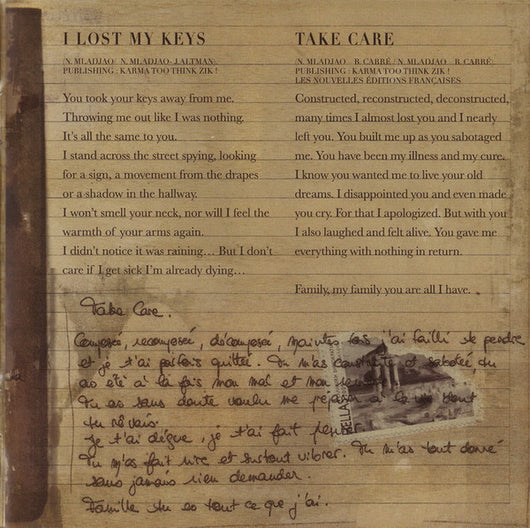 I LOST MY KEYS
(N. MLADJAO / N. MLADJAO - J.ALTMAN).
PUBLISHING : KARMA TOO THINK ZIK !
You took your keys away from me.
Throwing me out like I was nothing.
It's all the same to you.
I stand across the street spying, looking
for a sign, a movement from the drapes
or a shadow in the hallway.
I won't smell your neck, nor will I feel the
warmth of your arms again.
I didn't notice it was raining... But I don't
care if I get sick I'm already dying...
TAKE CARE
(N. MLADJAO - B. CARRÉ / N. MLADJAO - B. CARRÉ).
PUBLISHING : KARMA TOO THINK ZIK !
LES NOUVELLES ÉDITIONS FRANÇAISES
Constructed, reconstructed, deconstructed,
many times I almost lost you and I nearly
left you. You built me up as you sabotaged
me. You have been my illness and my cure.
I know you wanted me to live your old
dreams. I disappointed you and even made
you cry. For that I apologized. But with you
I also laughed and felt alive. You gave me
everything with nothing in return.
Family, my family you are all I have.
Take Care.
Composée, recomposée, décomposée, maintes fois j'ai failli te perdre
et je t'ai parfois quittée. Tu m'as construite et sabotée, tu
as été à la fois mon mal et mon remède
Tu as sans doute voulu me a la vie dont
tu rêvais.
Je t'ai déçue, je t'ai fait pleurer
Tu m'as fait rire et surtout vibrer. Tu m'as tout donné
sans jamais rien demander.
Famille tu es tout ce que j'ai.